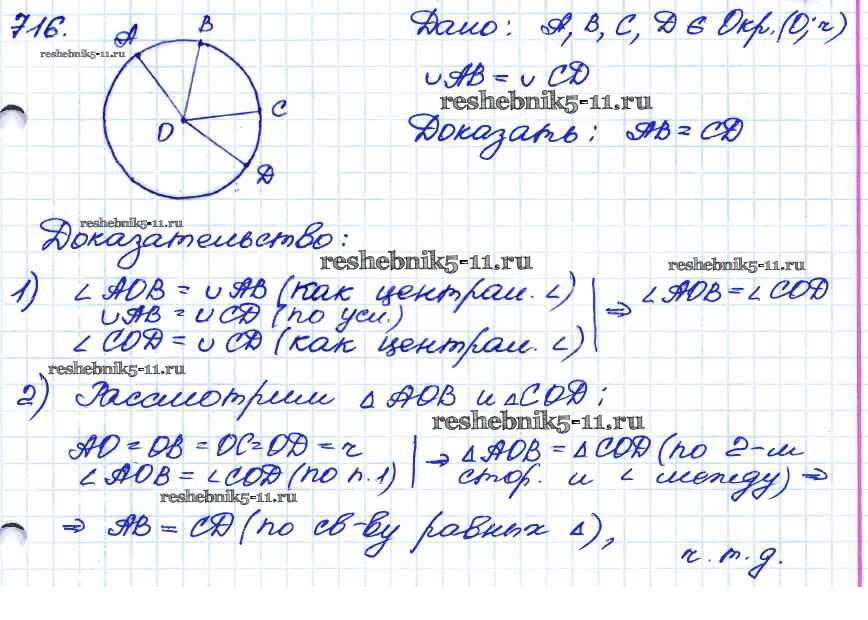 716.
reshebnik5-11.ru
A
B
C
D
D
Дано: A, B, C, D ∈ Окр.(O; r)
∪AB = ∪ CD
reshebnik5-11.ru
Доказать: AB = CD
reshebnik5-11.ru
Доказательство:
reshebnik5-11.ru
reshebnik5-11.ru
1) ∠ AOB = ∪ AB (как централ. ∠) | ⇒ ∠AOB = ∠ COD
∪ AB = ∪ CD (по усл.)
∠ COD = ∪ CD (как централ. ∠)
reshebnik5-11.ru
2) Рассмотрим △ AOB и △COD:
reshebnik5-11.ru
AO = OB = OC = OD = r | → △ AOB = △ COD (по 2-м
∠ AOB = ∠COD (по п.1) | стор. и ∠ между) ⇒
reshebnik5-11.ru
⇒ AB = CD (по св-ву равных △),
ч. т. д.